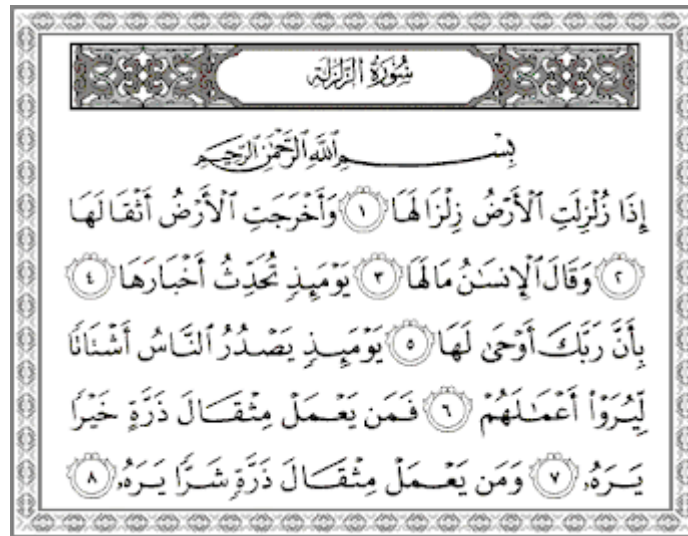 سُورَةُ الزَّلْزَلَةِ
بِسْمِ اللَّهِ الرَّحْمَٰنِ الرَّحِيمِ
إِذَا زُلْزِلَتِ ٱلْأَرْضُ زِلْزَالَهَا ١ وَأَخْرَجَتِ ٱلْأَرْضُ أَثْقَالَهَا
٢ وَقَالَ ٱلْإِنسَٰنُ مَالَهَا ٣ يَوْمَئِذٍ تُحَدِّثُ أَخْبَارَهَا ٤
بِأَنَّ رَبَّكَ أَوْحَىٰ لَهَا ٥ يَوْمَئِذٍ يَصْدُرُ ٱلنَّاسُ أَشْتَاتًا
لِّيُرَوْا۟ أَعْمَٰلَهُمْ ٦ فَمَن يَعْمَلْ مِثْقَالَ ذَرَّةٍ خَيْرًا
يَرَهُۥ ٧ وَمَن يَعْمَلْ مِثْقَالَ ذَرَّةٍ شَرًّا يَرَهُۥ ٨